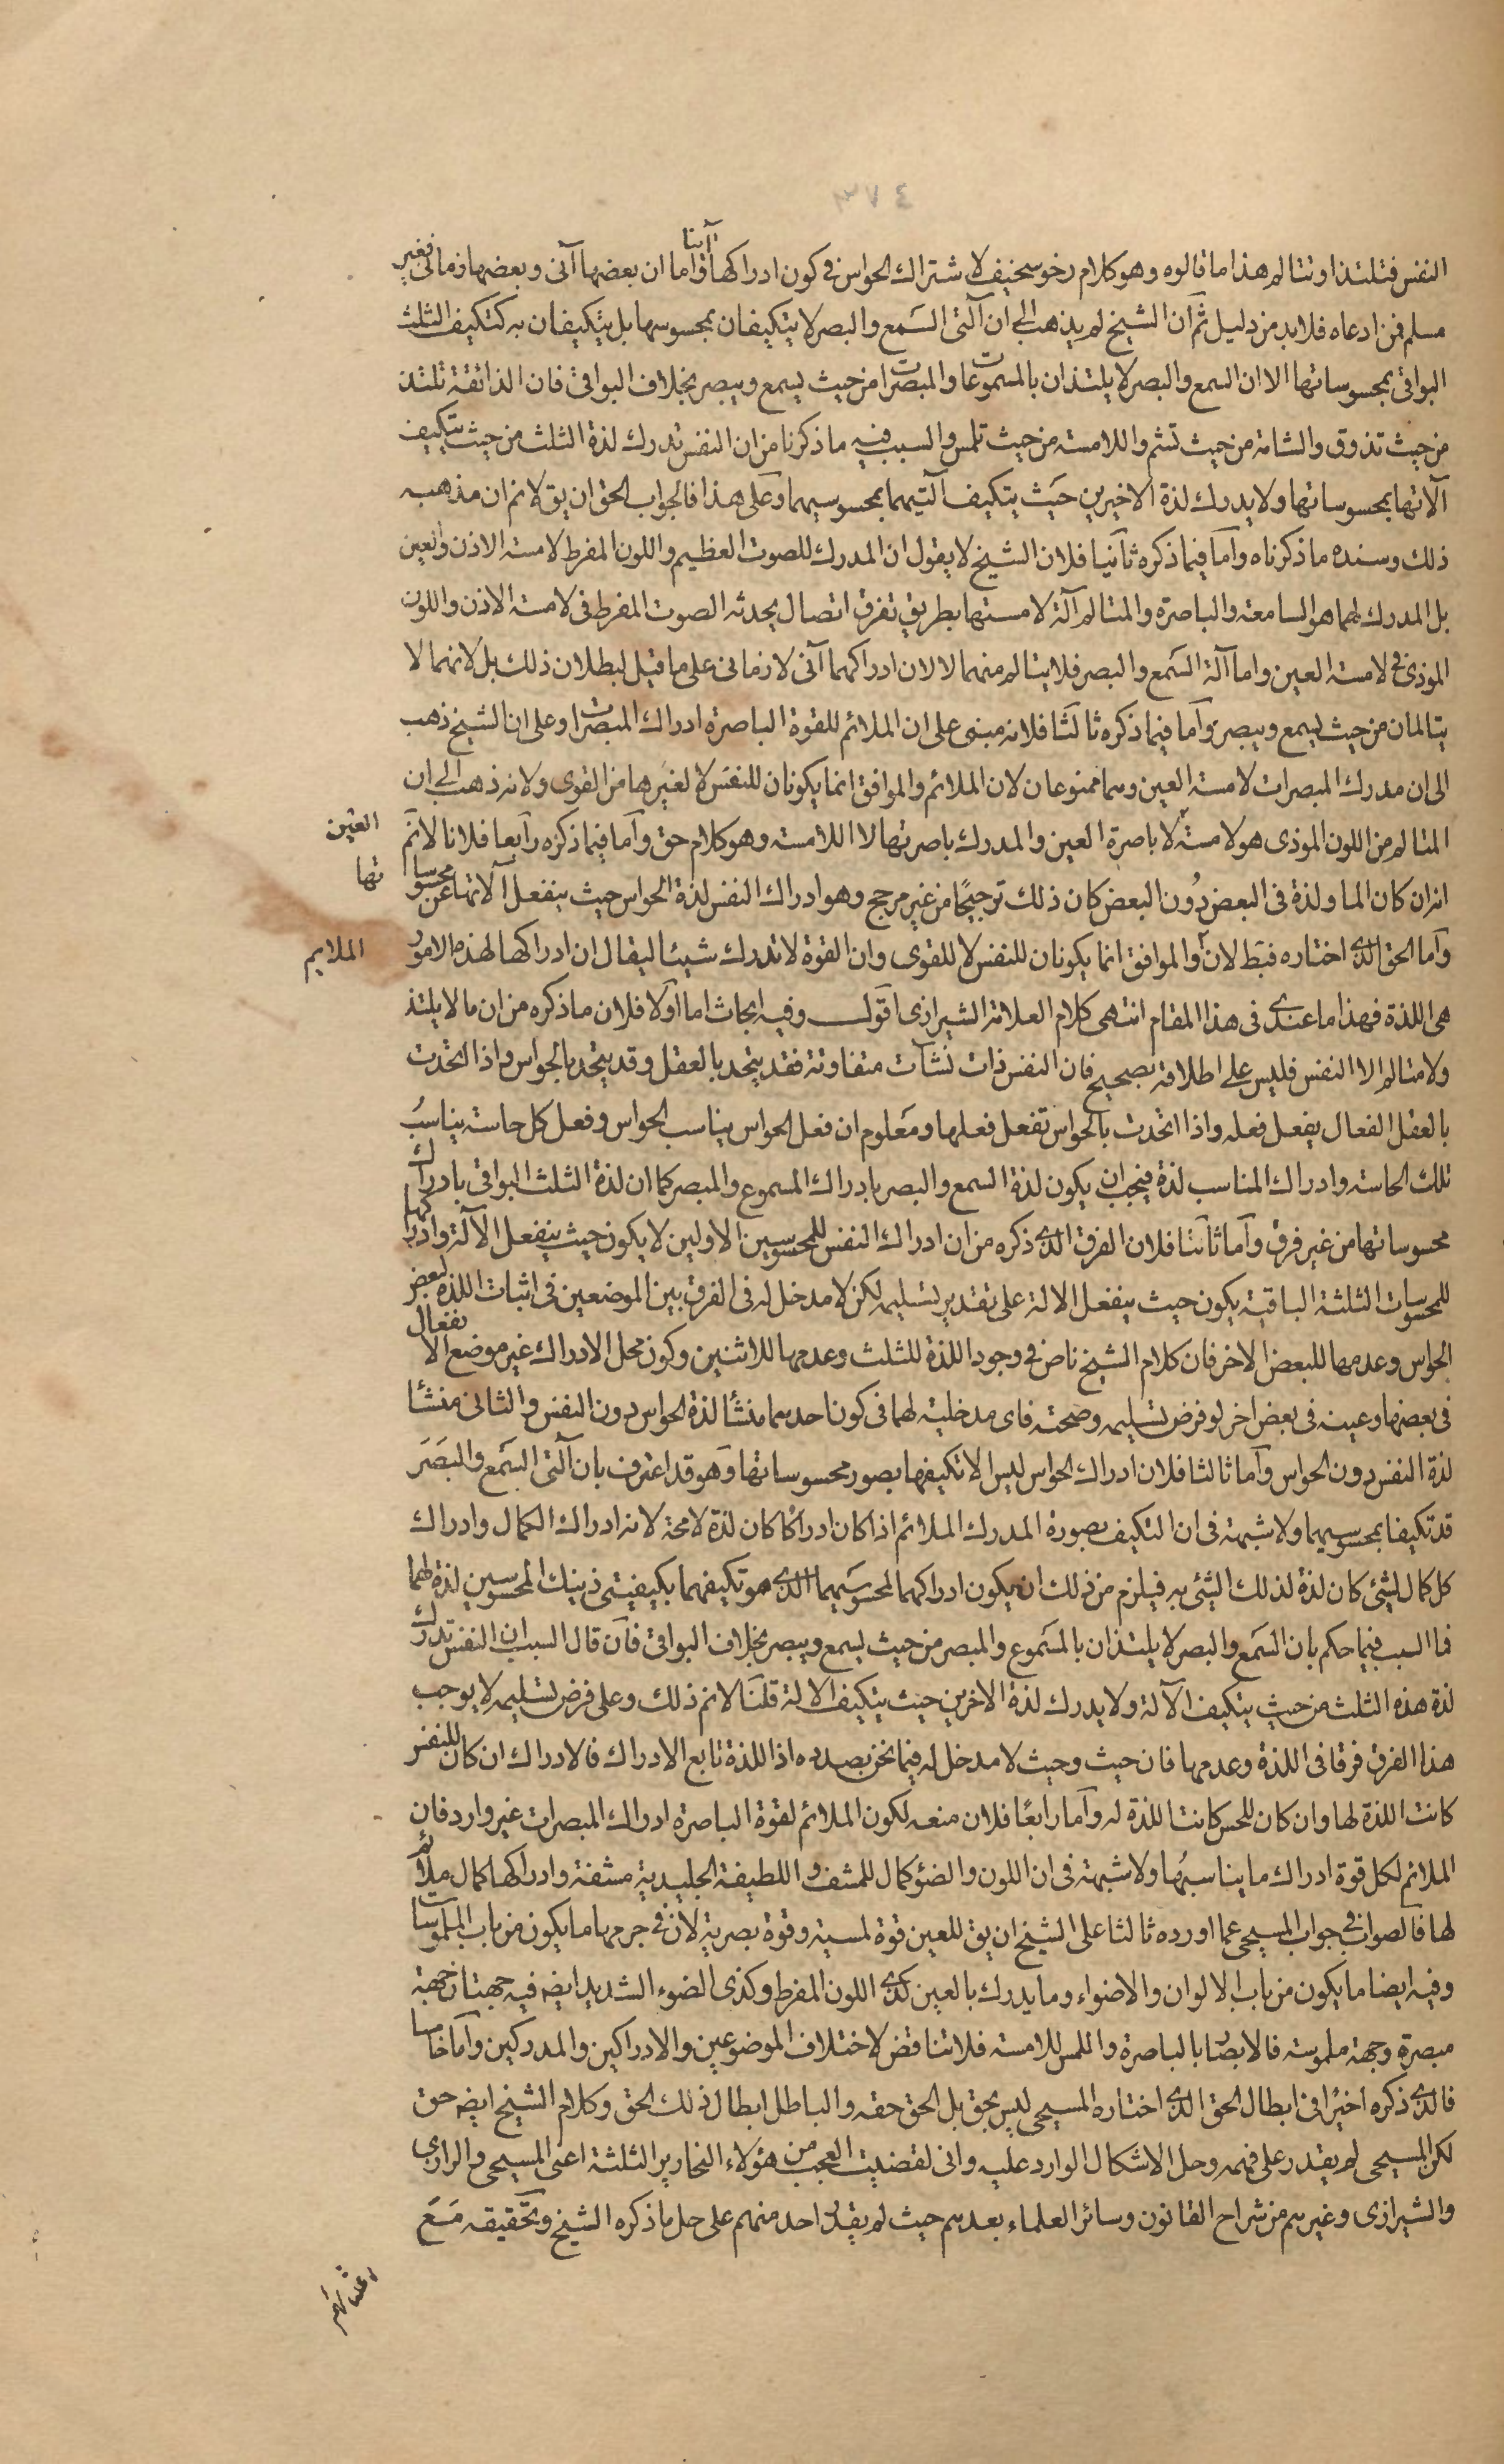 ٣٧٤
النفس فتلتذ او تتالم هذا ما قالوه وهو كلام رخو سخيف لاشتراك الحواس في كون ادراكها آنيا واما ان بعضها آنى وبعضها زمانى فغير
مسلم فمن ادعاه فلابد من دليل ثم ان الشيخ لم يذهب الى ان آلتى السمع والبصر لا يتكيفان بمحسوسها بل يتكيفان به كتكيف الثلث
البواقى بمحسوساتها الا ان السمع والبصر لا يلتذان بالمسموعات والمبصرات من حيث يسمع ويبصر بخلاف البواقى فان الذائقة تلتذ
من حيث تذوق والشامة من حيث تشم واللامسة من حيث تلمس والسبب فيه ما ذكرنا من ان النفس تدرك لذة الثلث من حيث يتكيف
آلاتها بمحسوساتها ولا يدرك لذة الاخيرين حيث يتكيف آلتيهما بمحسوسيهما وعلى هذا فالجواب الحق ان يق لانم ان مذهبه
ذلك وسنده ما ذكرناه وأما فيما ذكره ثانيا فلان الشيخ لا يقول ان المدرك للصوت العظيم واللون المفرط لامسة الاذن والعين
بل المدرك لهما هو السامعة والباصرة والمتالم آلة لامستها بطريق تفرق اتصال يحدثه الصوت المفرط فى لامسة الاذن واللون
الموذى في لامسة العين واما آلة السمع والبصر فلا يتالم منهما لا لان ادراكهما آنى لا زمانى على ما قيل لبطلان ذلك بل لانهما لا
يتالمان من حيث يسمع ويبصر وأما فيما ذكره ثالثا فلانه مبنى على ان الملائم للقوة الباصرة ادراك المبصرات وعلى ان الشيخ ذهب
الى ان مدرك المبصرات لامسة العين وهما ممنوعان لان الملائم والموافق انما يكونان للنفس لا لغيرها من القوى ولانه ذهب الى ان
المتالم من اللون الموذى هو لامسة لا باصرة العين والمدرك باصرتها لا اللامسة وهو كلام حق وأما فيما ذكره رابعا فلانا لانم
العين
انه ان كان الما ولذة فى البعض دون البعض كان ذلك ترجيحا من غير مرجح وهو ادراك النفس لذة الحواس حيث ينفعل آلاتها عن محسوسا
تها
وأما الحق الذى اختاره فبط لان والموافق انما يكونان للنفس لا للقوى وان القوة لا تدرك شيئا ليقال ان ادراكها لهذه الامور
الملايم
هى اللذة فهذا ما عندى فى هذا المقام انتهى كلام العلامة الشيرازى اقول وفيه ابحاث اما اولا فلان ما ذكره من ان ما لا يلتذ
ولا متالم الا النفس فليس على اطلاقه بصحيح فان النفس ذات نشآت متفاوتة فقد يتحد بالعقل وقد يتحد بالحواس واذا اتحدت
بالعقل الفعال يفعل فعله واذا اتحدت بالحواس تفعل فعلها ومعلوم ان فعل الحواس يناسب الحواس وفعل كل حاسة يناسب
تلك الحاسة وادراك المناسب لذة فيجب ان يكون لذة السمع والبصر بادراك المسموع والمبصر كما ان لذة الثلث البواقى بادراك
محسوساتها من غير فرق وأما ثانيا فلان الفرق الذى ذكره من ان ادراك النفس للمحسوسين الاولين لا يكون حيث ينفعل الآلة وادراكها
للمحسوسات الثلثة الباقية يكون حيث ينفعل الالة على تقدير تسليمه لكن لا مدخل له فى الفرق بين الموضعين فى اثبات اللذة لبعض
الحواس وعدمها للبعض الاخر فان كلام الشيخ ناص في وجود اللذة للثلث وعدمها للاثنين وكون محل الادراك غير موضع الانفعال
فى بعضها وعينه فى بعض اخر لو فرض تسليمه وصحته فاى مدخلية لهما فى كون احدهما منشأ لذة الحواس دون النفس والثانى منشأ
لذة النفس دون الحواس وأما ثالثا فلان ادراك الحواس ليس الا تكيفها بصور محسوساتها وهو قد اعترف بان آلتى السمع والبصر
قد تكيفا بمحسوسيهما ولا شبهة فى ان التكيف بصورة المدرك الملائم اذا كان ادراكا كان لذة لا محة لانه ادراك الكمال وادراك
كل كمال لشئ كان لذة لذلك الشئ به فيلزم من ذلك ان يكون ادراكهما لمحسوسيهما الذى هو تكيفهما بكيفيتى ذينك المحسوسين لذة لهما
فما السبب فيما حكم بان السمع والبصر لا يلتذان بالمسموع والمبصر من حيث يسمع ويبصر بخلاف البواقى فان قال السبب ان النفس تدرك
لذة هذه الثلث من حيث يتكيف الآلة ولا يدرك لذة الاخرين حيث يتكيف الالة قلنا لانم ذلك وعلى فرض تسليمه لا يوجب
هذا الفرق فرقا فى اللذة وعدمها فان حيث وحيث لا مدخل له فيما نحن بصدده اذ اللذة تابع الادراك فالادراك ان كان للنفس
كانت اللذة لها وان كان للحس كانت اللذة له وأما رابعا فلان منعه لكون الملائم لقوة الباصرة ادراك المبصرات غير وارد فان
الملائم لكل قوة ادراك ما يناسبها ولا شبهة فى ان اللون والضوء كمال للمشف واللطيفة الجليدية مشفة وادراكها كمال ملائم
لها فالصواب في جواب المسيحى عما اورده ثالثا على الشيخ ان يق للعين قوة لمسية وقوة بصرية لان في جرمها ما يكون من باب الملموسات
وفيه ايضا ما يكون من باب الالوان والاضواء وما يدرك بالعين كذى اللون المفرط وكذى الضوء الشديد ايضه فيه جهتان جهة
مبصرة وجهة ملموسة فالابصار بالباصرة واللمس للامسة فلا تناقض لاختلاف الموضوعين والادراكين والمدركين وأما خامسا
فالذى ذكره اخيرا فى ابطال الحق الذى اختاره المسيحى ليس بحق بل الحق حقه والباطل ابطال ذلك الحق وكلام الشيخ ايضه حق
لكن المسيحى لم يقدر على فهمه وحل الاشكال الوارد عليه وانى لقضيت العجب من هؤلاء النحارير الثلثة اعنى المسيحى والرازى
والشيرازى وغيرهم من شراح القانون وسائر العلماء بعدهم حيث لم يقدر احد منهم على حل ما ذكره الشيخ وتحقيقه مع